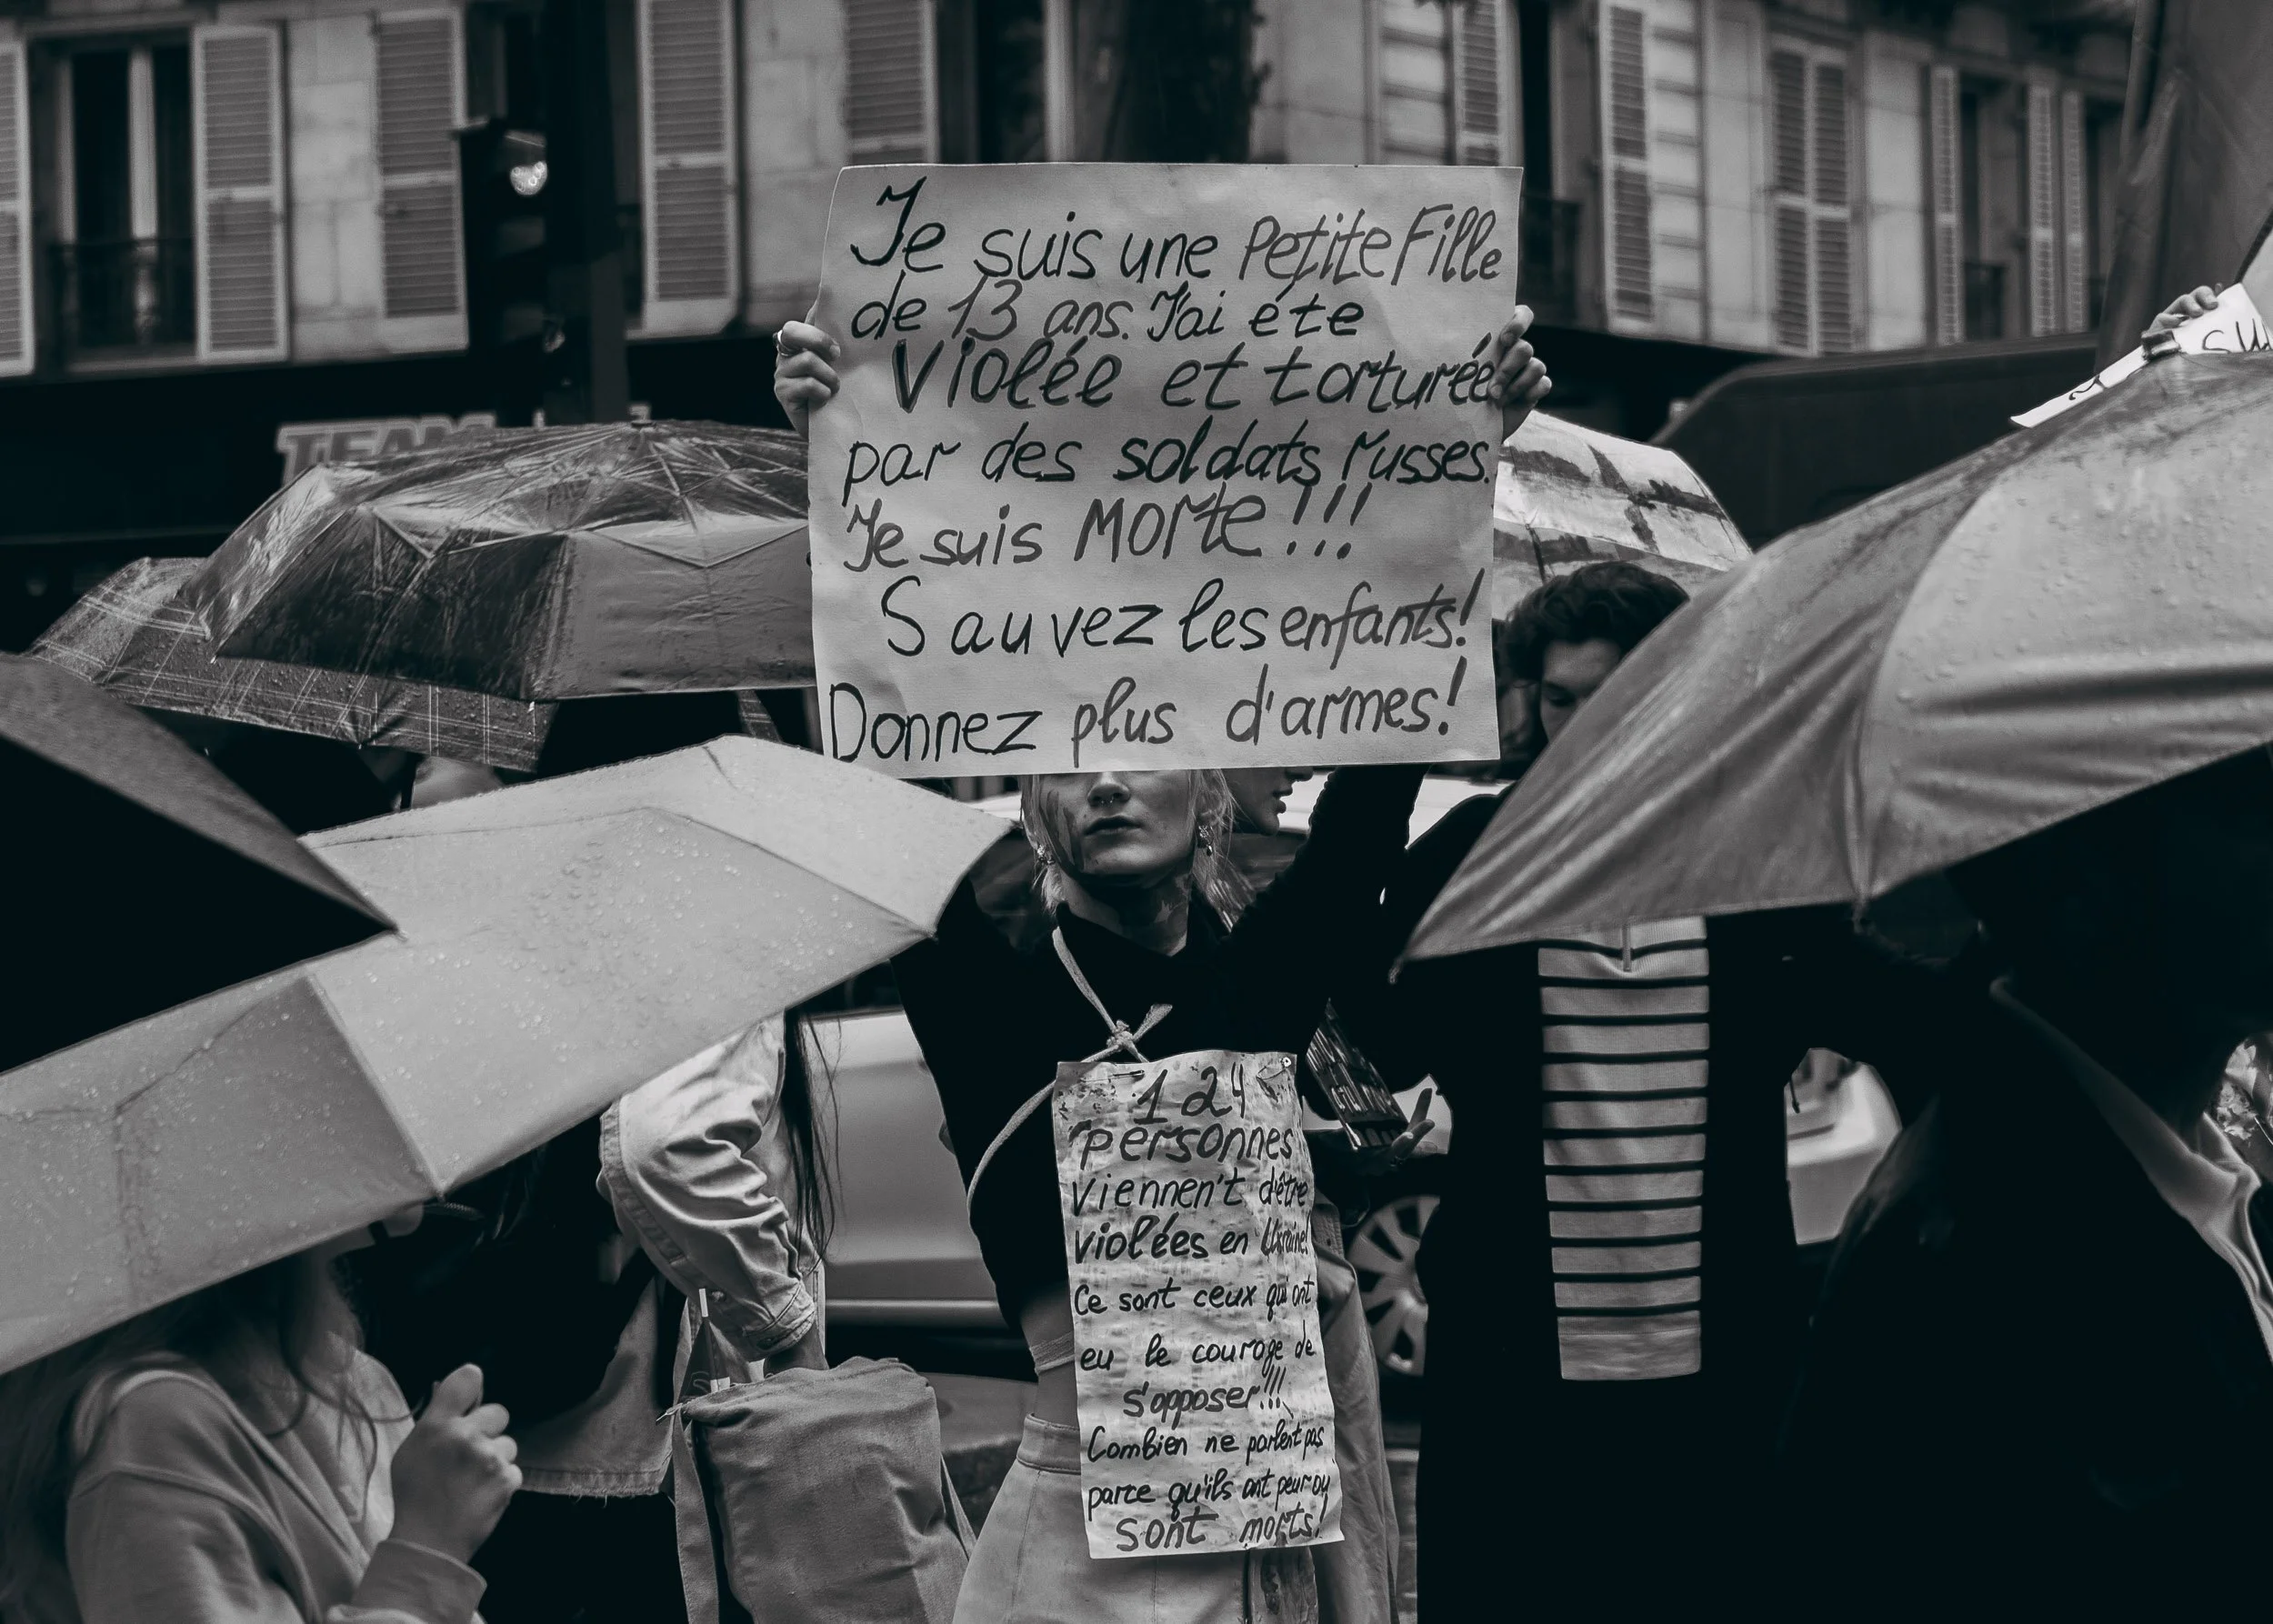 Je suis une Petite Fille
de 13 ans. J'ai éte
Violée et torturée
par des soldats russes.
Je suis Morte!!!
Sauvez les enfants!
Donnez plus d'armes!
TEAM
su
124
personnes
viennen't d'être
violées en Ukraine!
Ce sont ceux qui ont
eu le courage de
s'opposer!!!
Combien ne parlent pas
parce qu'ils ont peur ou
sont morts!